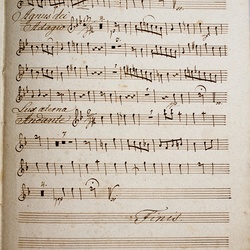 Agnus dei
Adagio
Lux æterna
Andante
Finis